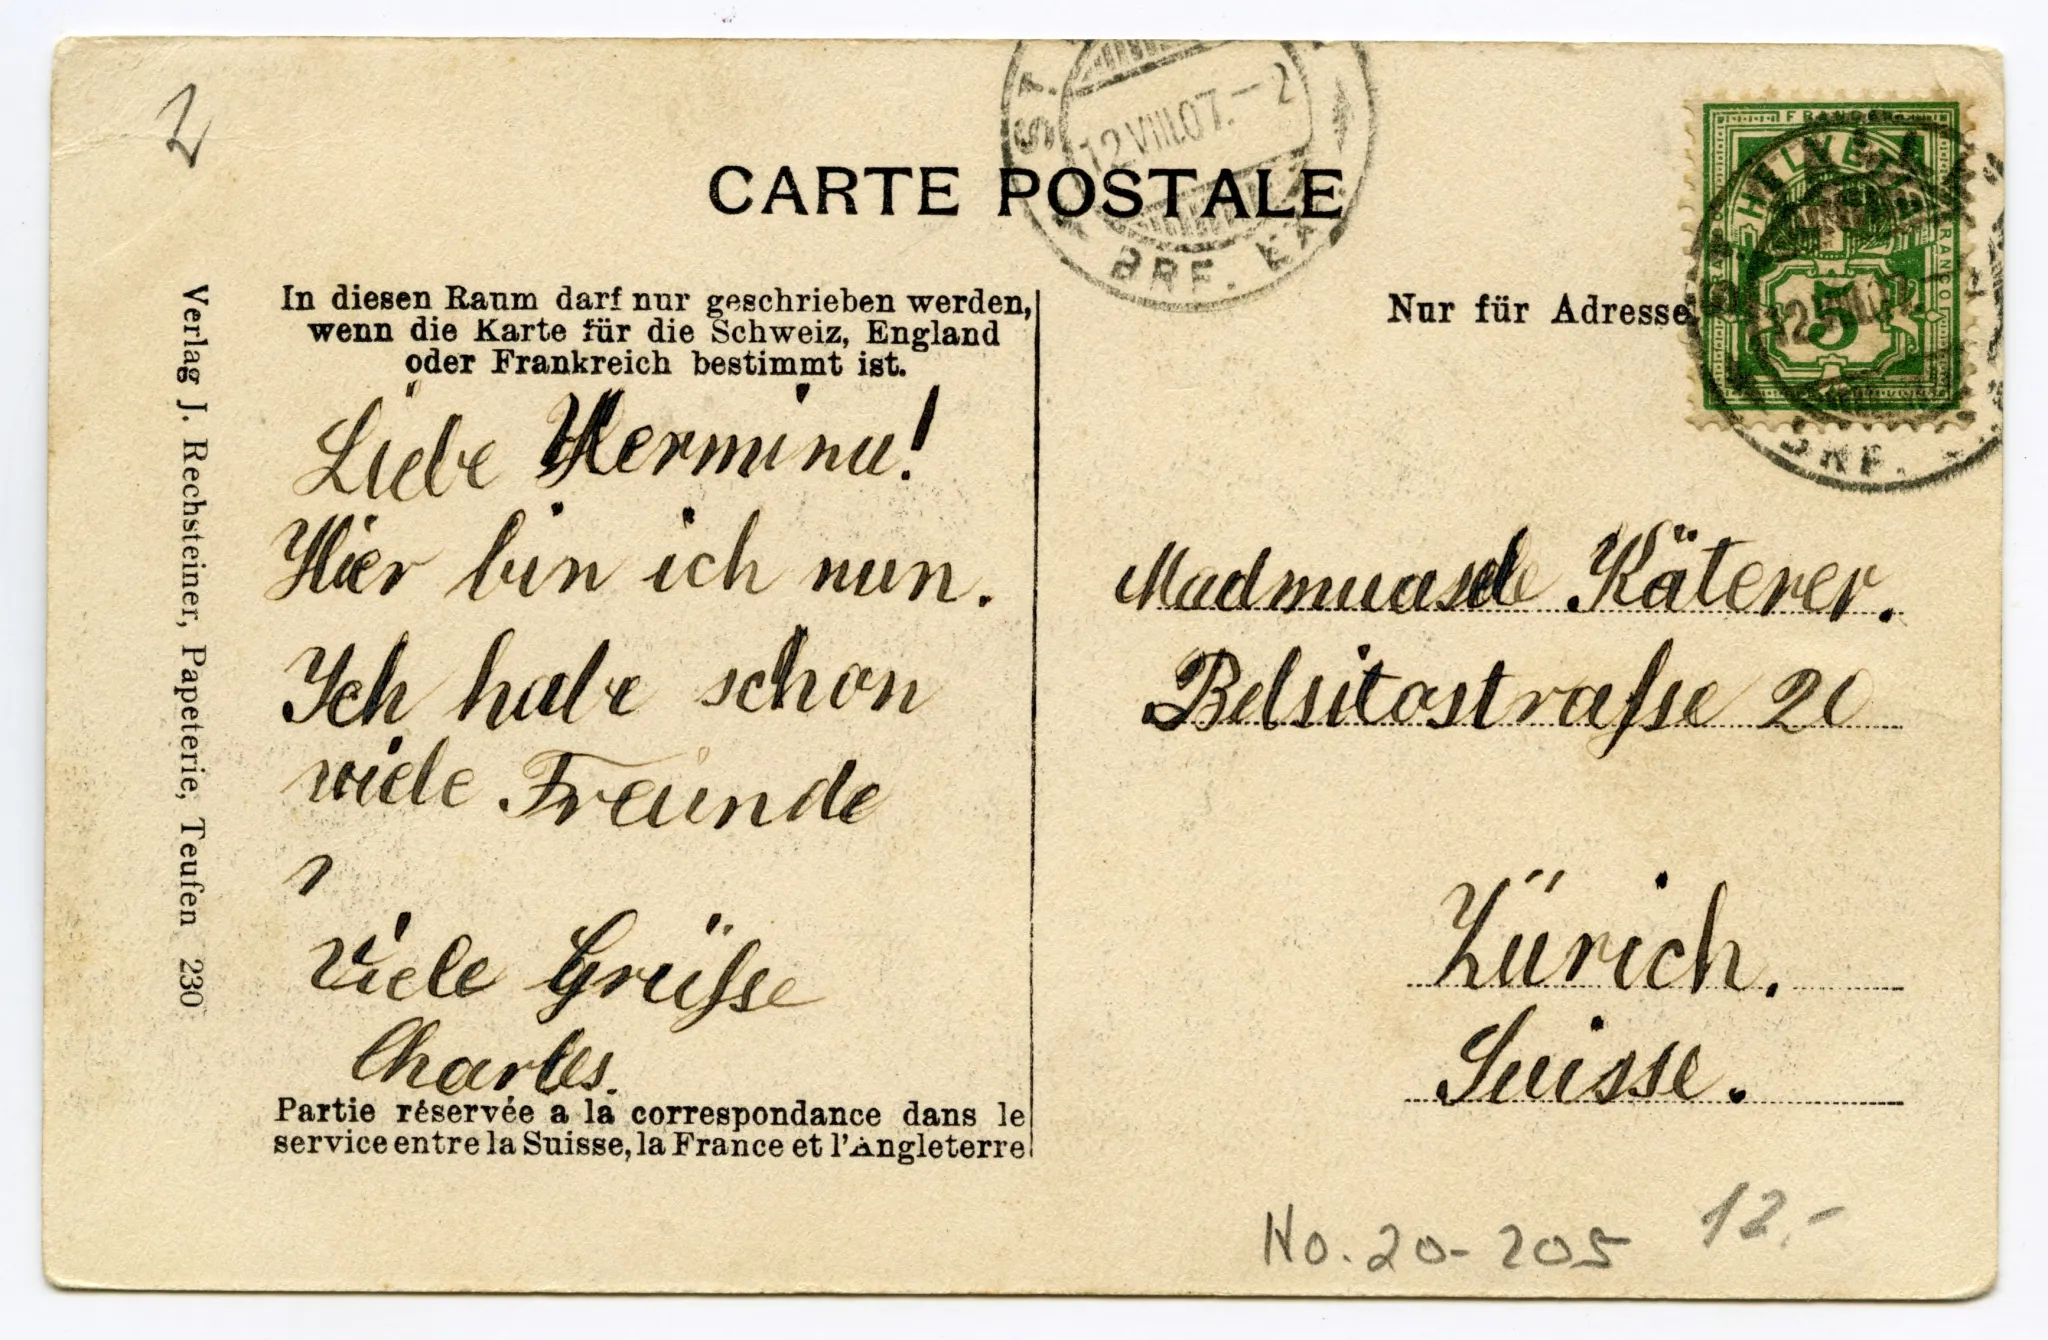 2
CARTE POSTALE
ST.
12.VIII.07.-2
BRF. EX
FRANCO
HELVETIA
FRANCO
5
12.VIII.07
BRF.
In diesen Raum darf nur geschrieben werden,
wenn die Karte für die Schweiz, England
oder Frankreich bestimmt ist.
Nur für Adresse
Liebe Hermina!
Hier bin ich nun.
Ich habe schon
viele Freunde
Viele Grüsse
Charles.
Partie réservée a la correspondance dans le
service entre la Suisse, la France et l'Angleterre
Madmuasele Käterer.
Belsitostrasse 20
Zürich.
Suisse.
Verlag J. Rechsteiner, Papeterie, Teufen 230
No. 20-205
12.-